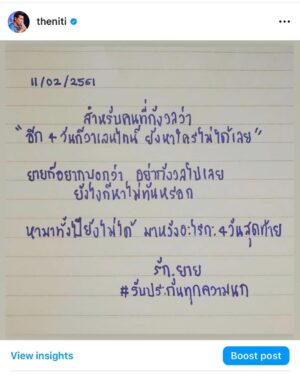 theniti
11/02/2561
สำหรับคนที่กังวลว่า
"อีก 4 วันถึงวาเลนไทน์ ยังหาใครไม่ได้เลย"
ยายก็อยากบอกว่า อย่ากังวลไปเลย
ยังไงก็หาไม่ทันหรอก
หามาทั้งปียังไม่ได้ มาหวังอะไรกะ 4 วันสุดท้าย
รัก. ยาย
#รับประกันทุกความนก
View insights
Boost post